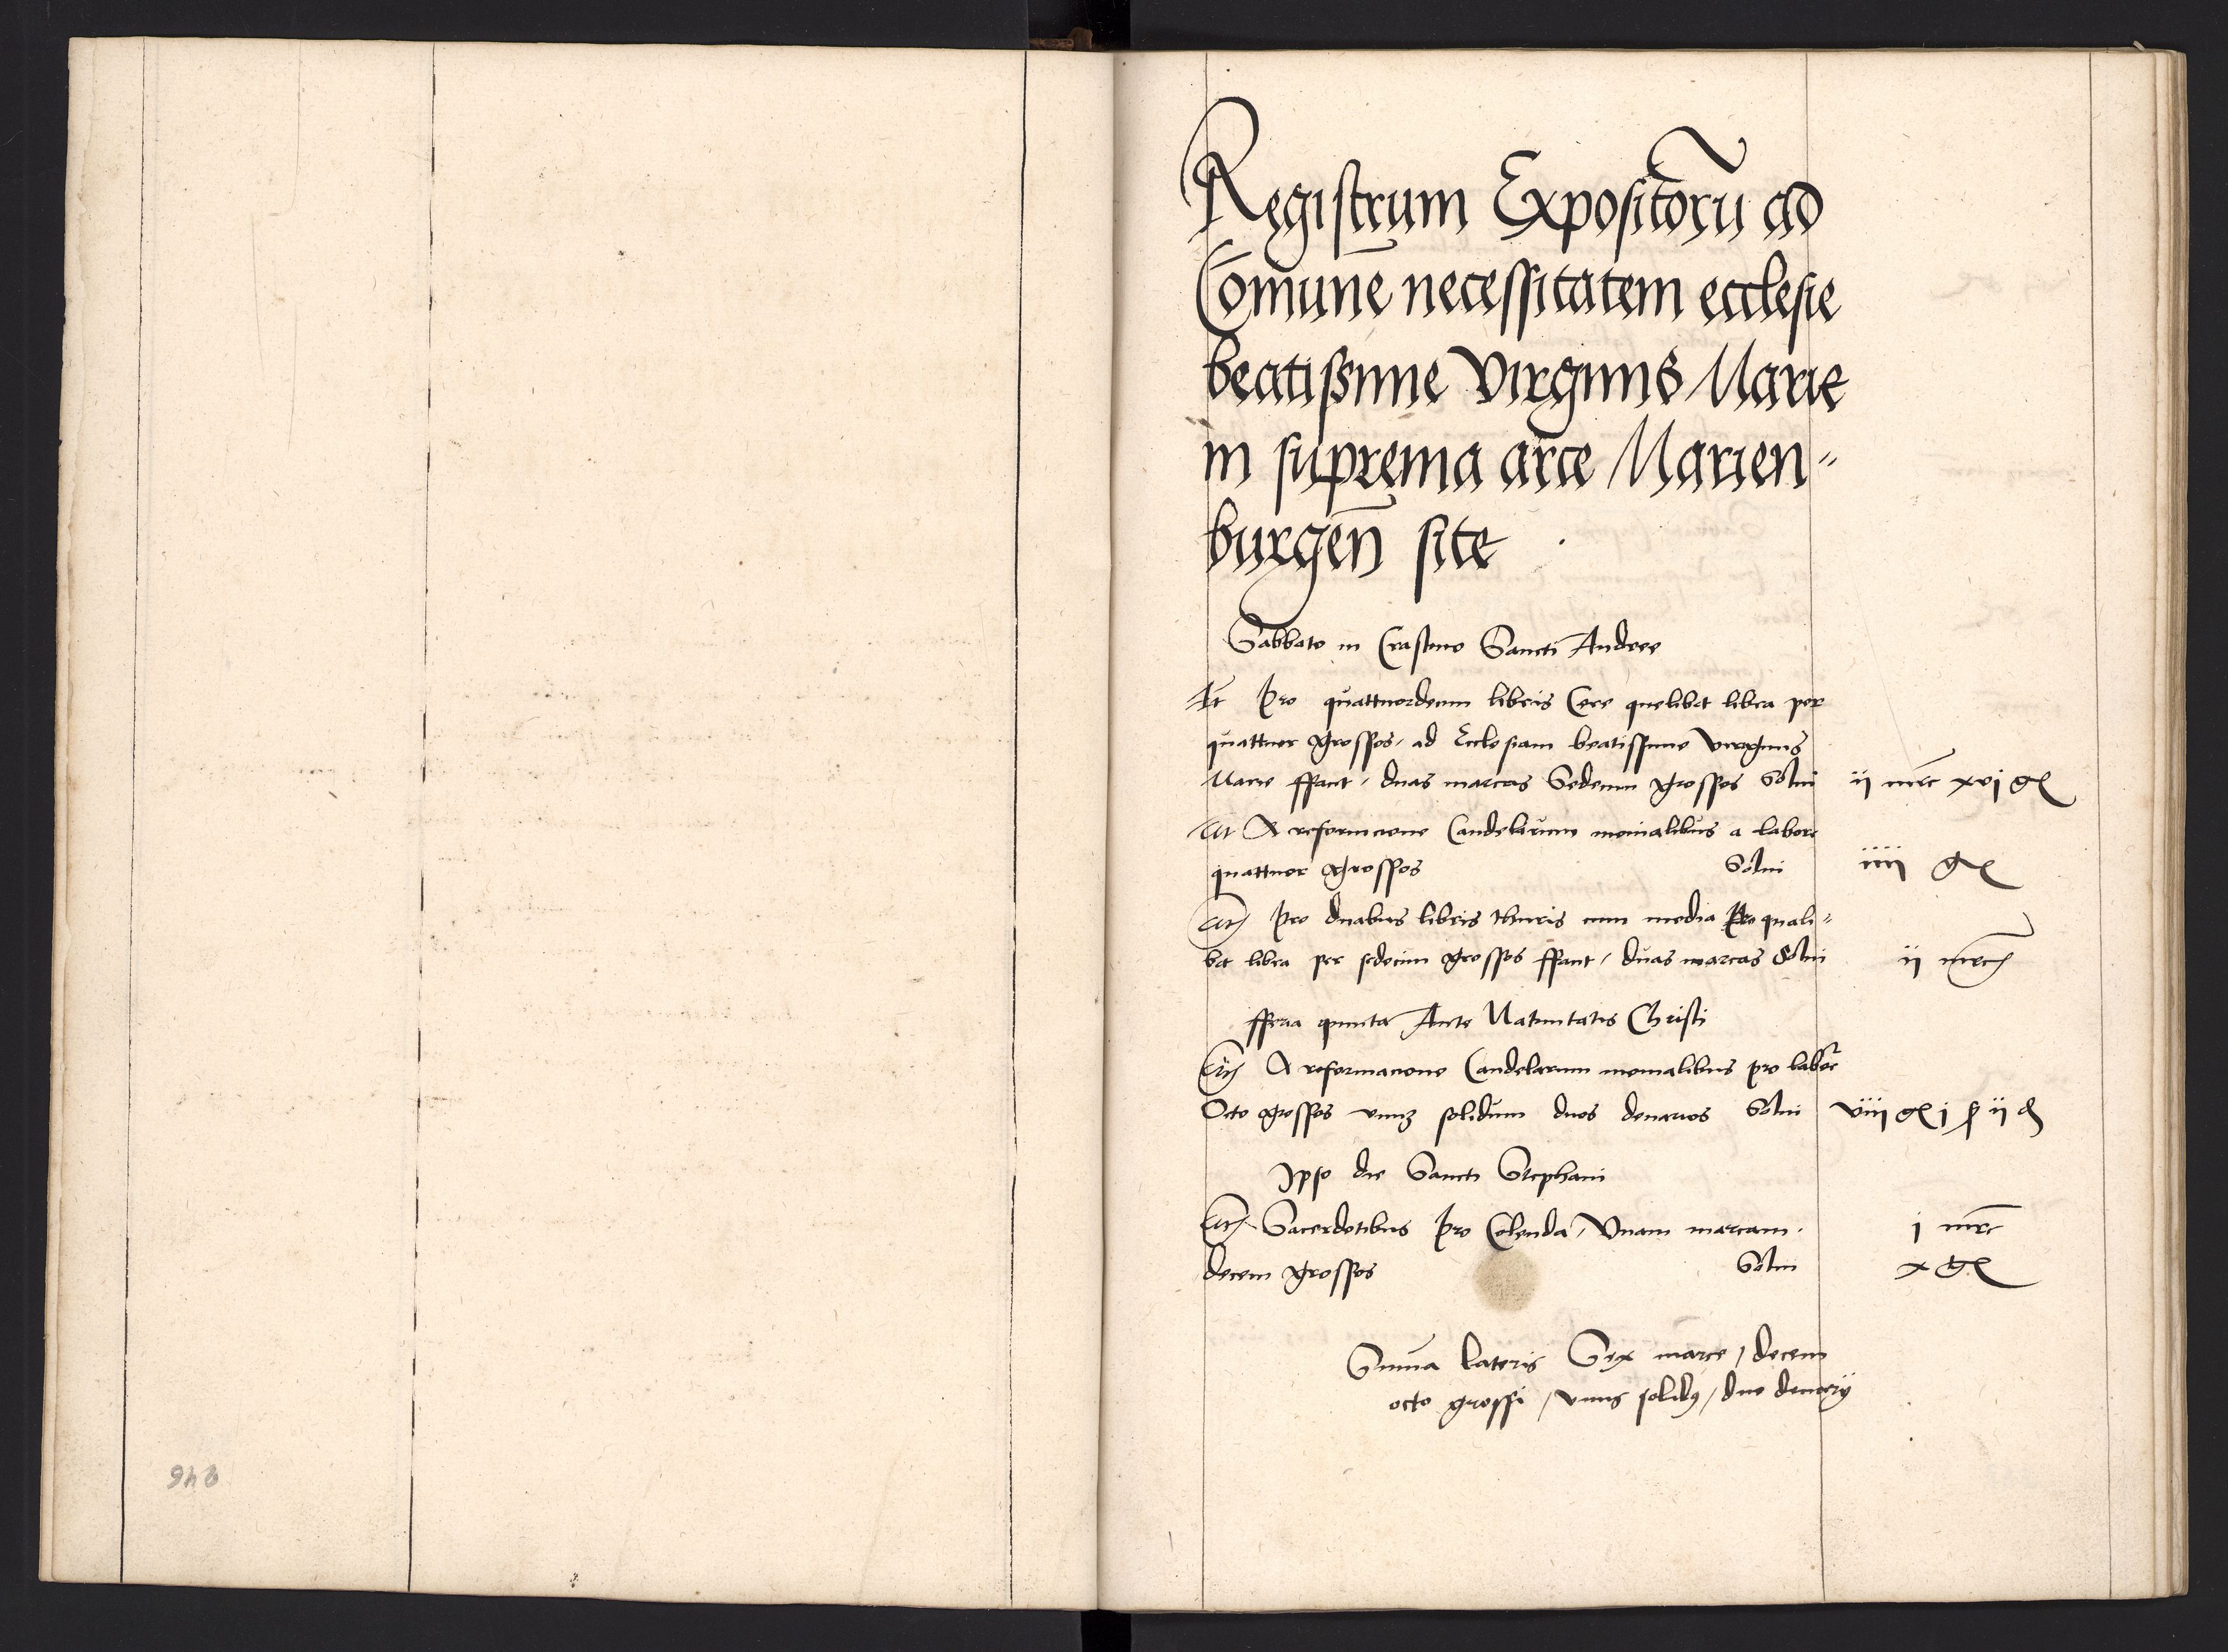 Registrum Expositorũ ad
Comune necessitatem ecclesie
beatissime Virginis Marie
in suprema arce Marien=
burgeñ site
Sabbato in Crastino Sancti Andree
It Pro quattuordecim libris Cere quelibet libra per
quattuor grossos, ad Ecclesiam beatissime virginis
Marie ffact, duas marcas Sedecim grossos Solui ij mrc xvj g
It A reformacione Candelarum monialibus a labore
quattuor grossos Solui iiij g
It Pro duabus libris thuris cum media Pro quali=
bet libra per sedecim grossos ffact, duas marcas Solui ij mrc
fferia quinta Ante Natiuitatis Christi
It A reformacione Candelarum monialibus pro labore
Octo grossos vnuʒ solidum duos denarios Solui viij g j ß ij d
Ipso die Sancti Stephani
It Sacerdotibus Pro Colenda, Vnam marcam. j mrc
decem grossos Solui x g
Suma lateris Sex marce, decem
octo grossi, vnus solidꝰ, duo denarij
946